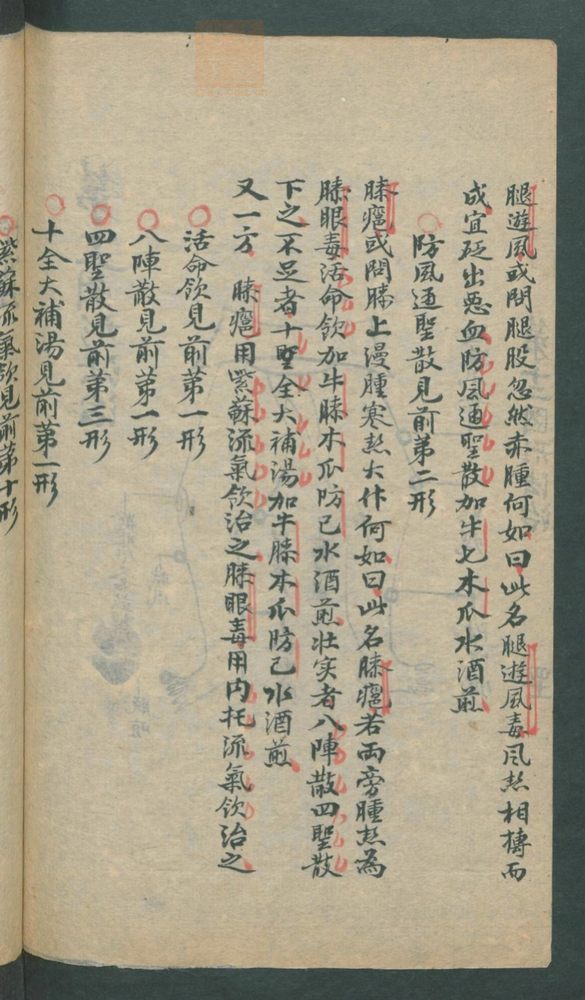 腿遊風或問腿股忽然赤腫何如曰此名腿遊風毒風熱相摶而
成宜砭出惡血防風通聖散加牛七木瓜水酒煎
防風通聖散見前第二形
膝癰或問膝上漫腫寒熱大作何如曰此名膝癰若両旁腫熱為
膝眼毒活命飲加牛膝木瓜防己水酒煎壮实者八陣散四聖散
下之不足者十聖全大補湯加牛膝木瓜防己水酒煎
又一方 膝癰用紫蘇流氣飲治之膝眼毒用内托流氣飲治之
活命飲見前第一形
八陣散見前第一形
四聖散見前第三形
十全大補湯見前第一形
紫蘇流氣飲見前第十形